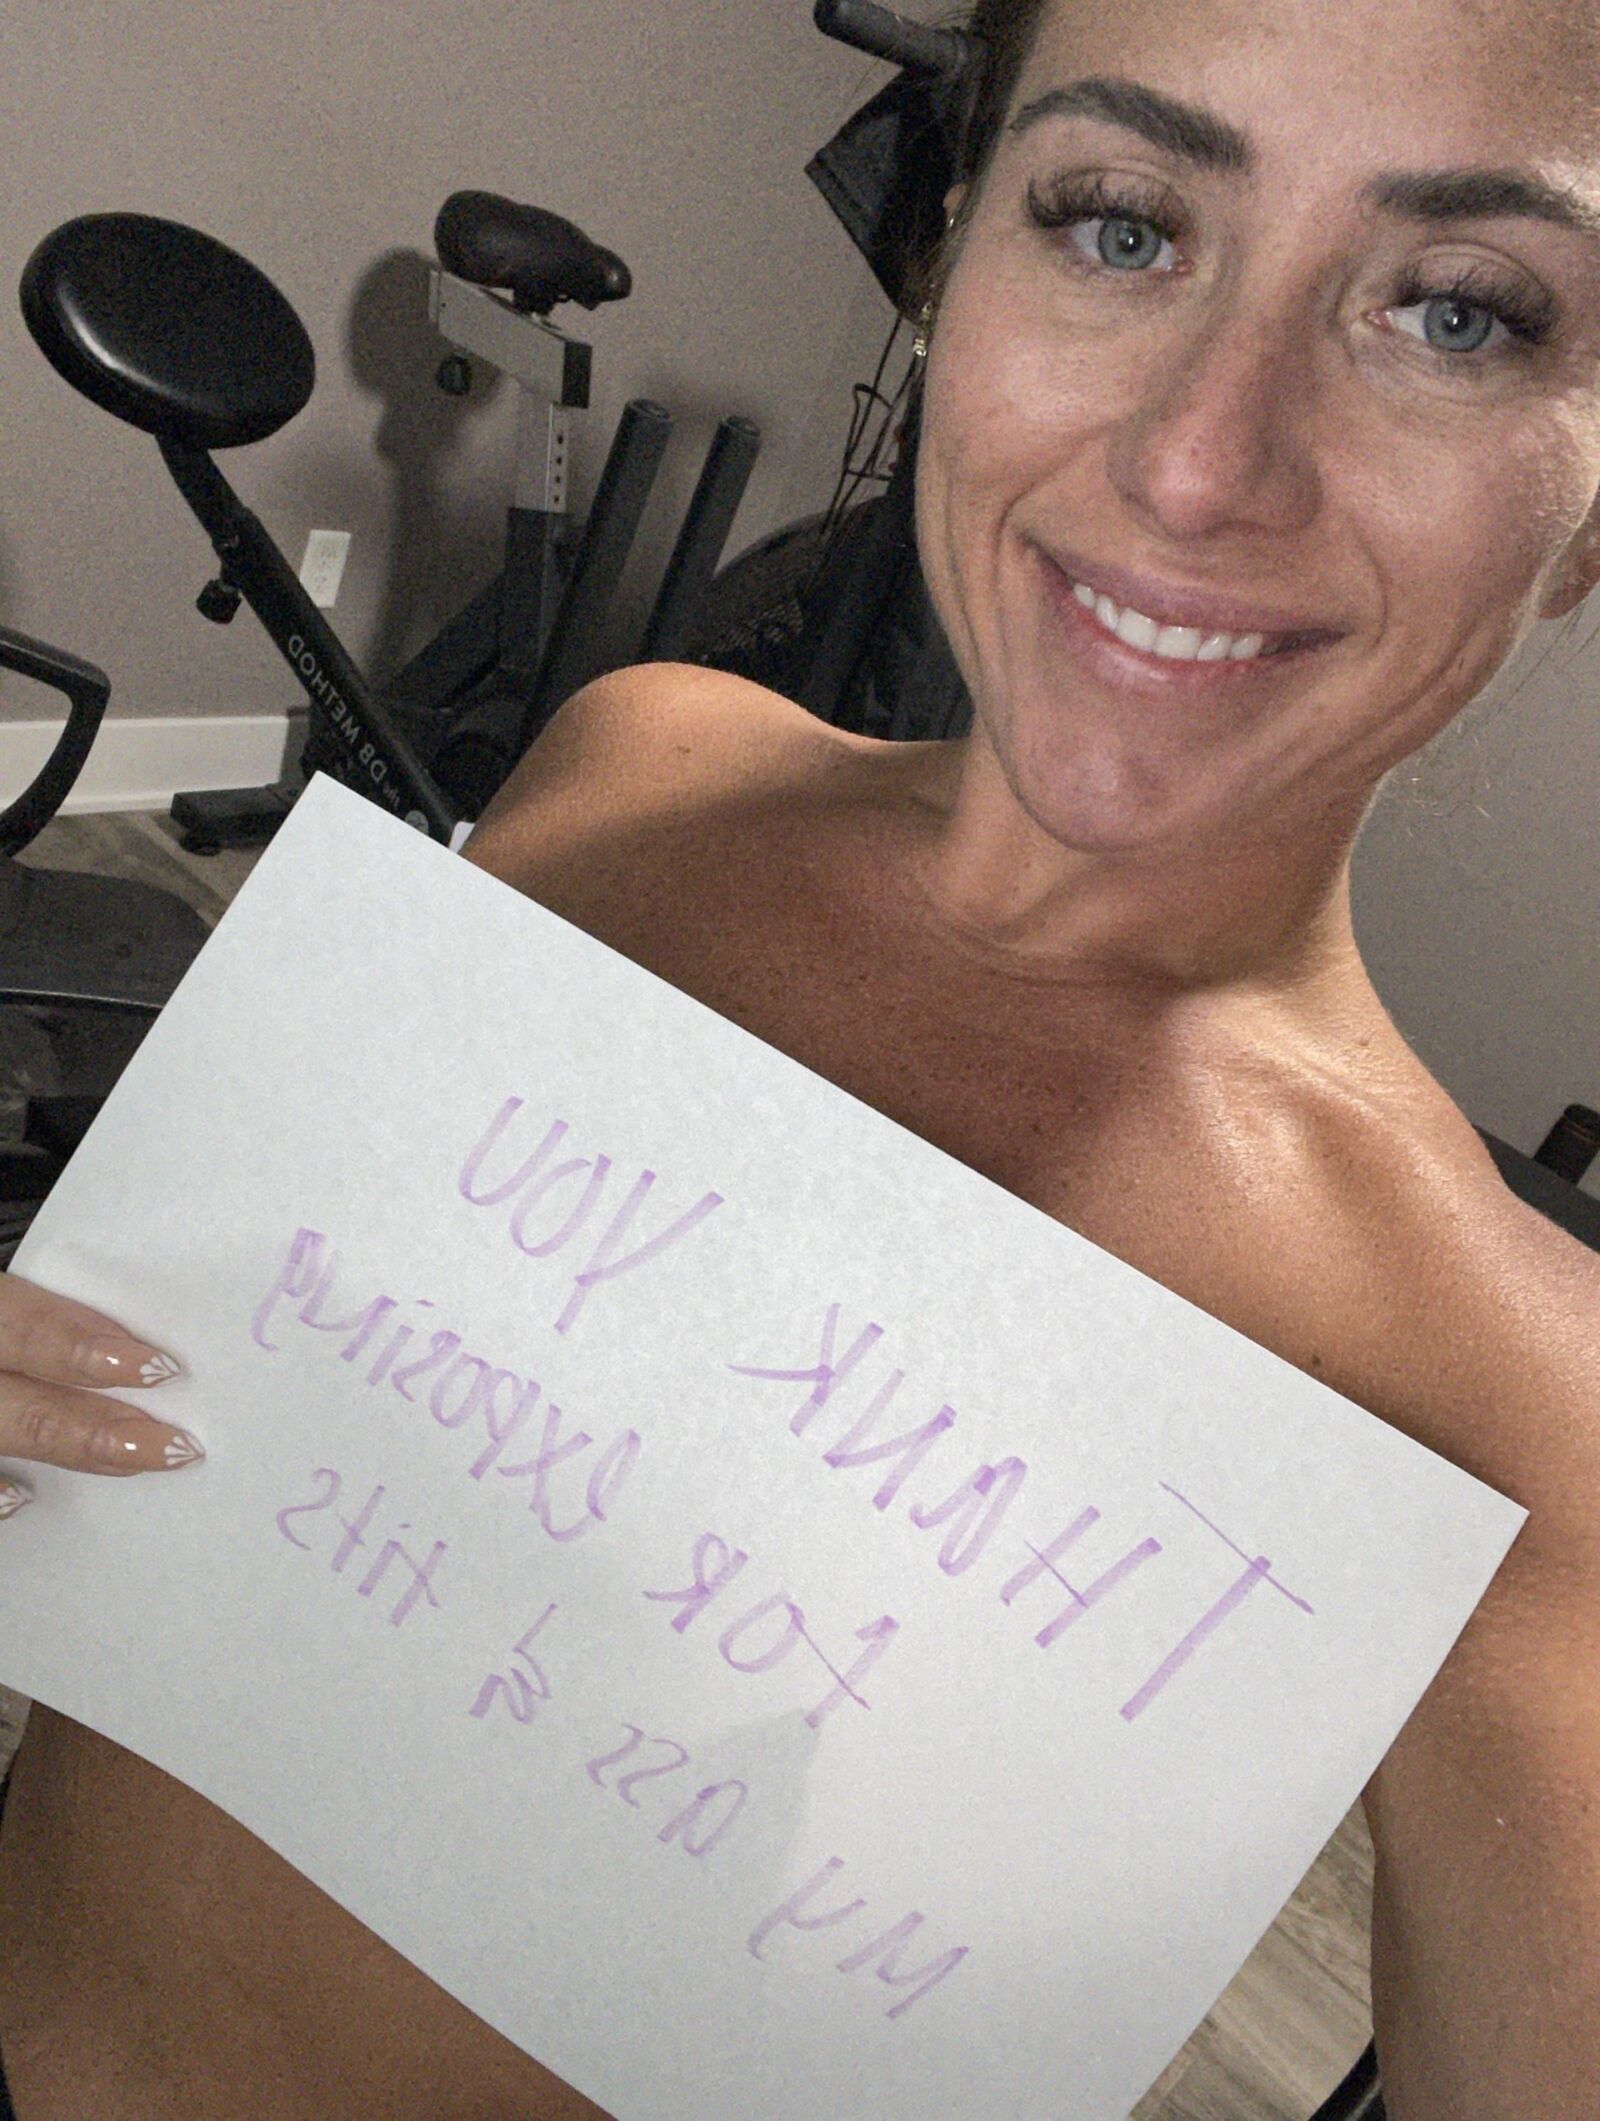 THANK YOU
FOR Exposing
MY ASS & tits
DB METHOD